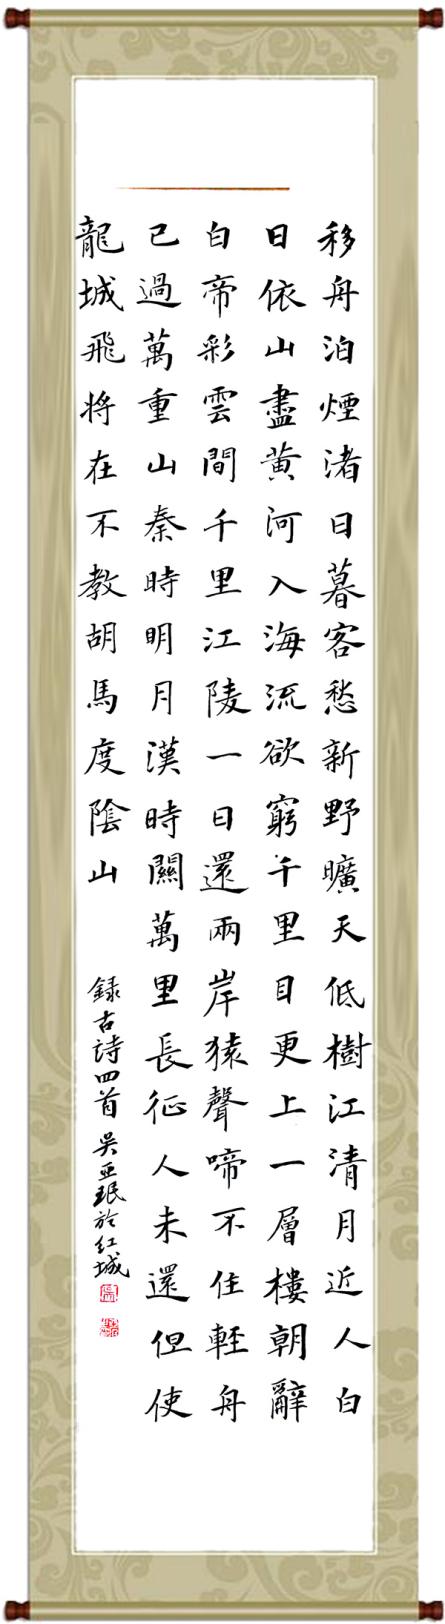 移舟泊煙渚日暮客愁新野曠天低樹江清月近人白
日依山盡黄河入海流欲窮千里目更上一層樓朝辭
白帝彩雲間千里江陵一日還兩岸猿聲啼不住輕舟
已過萬重山秦時明月漢時關萬里長征人未還但使
龍城飛将在不教胡馬度陰山 録古詩四首 吴亚珉於红城